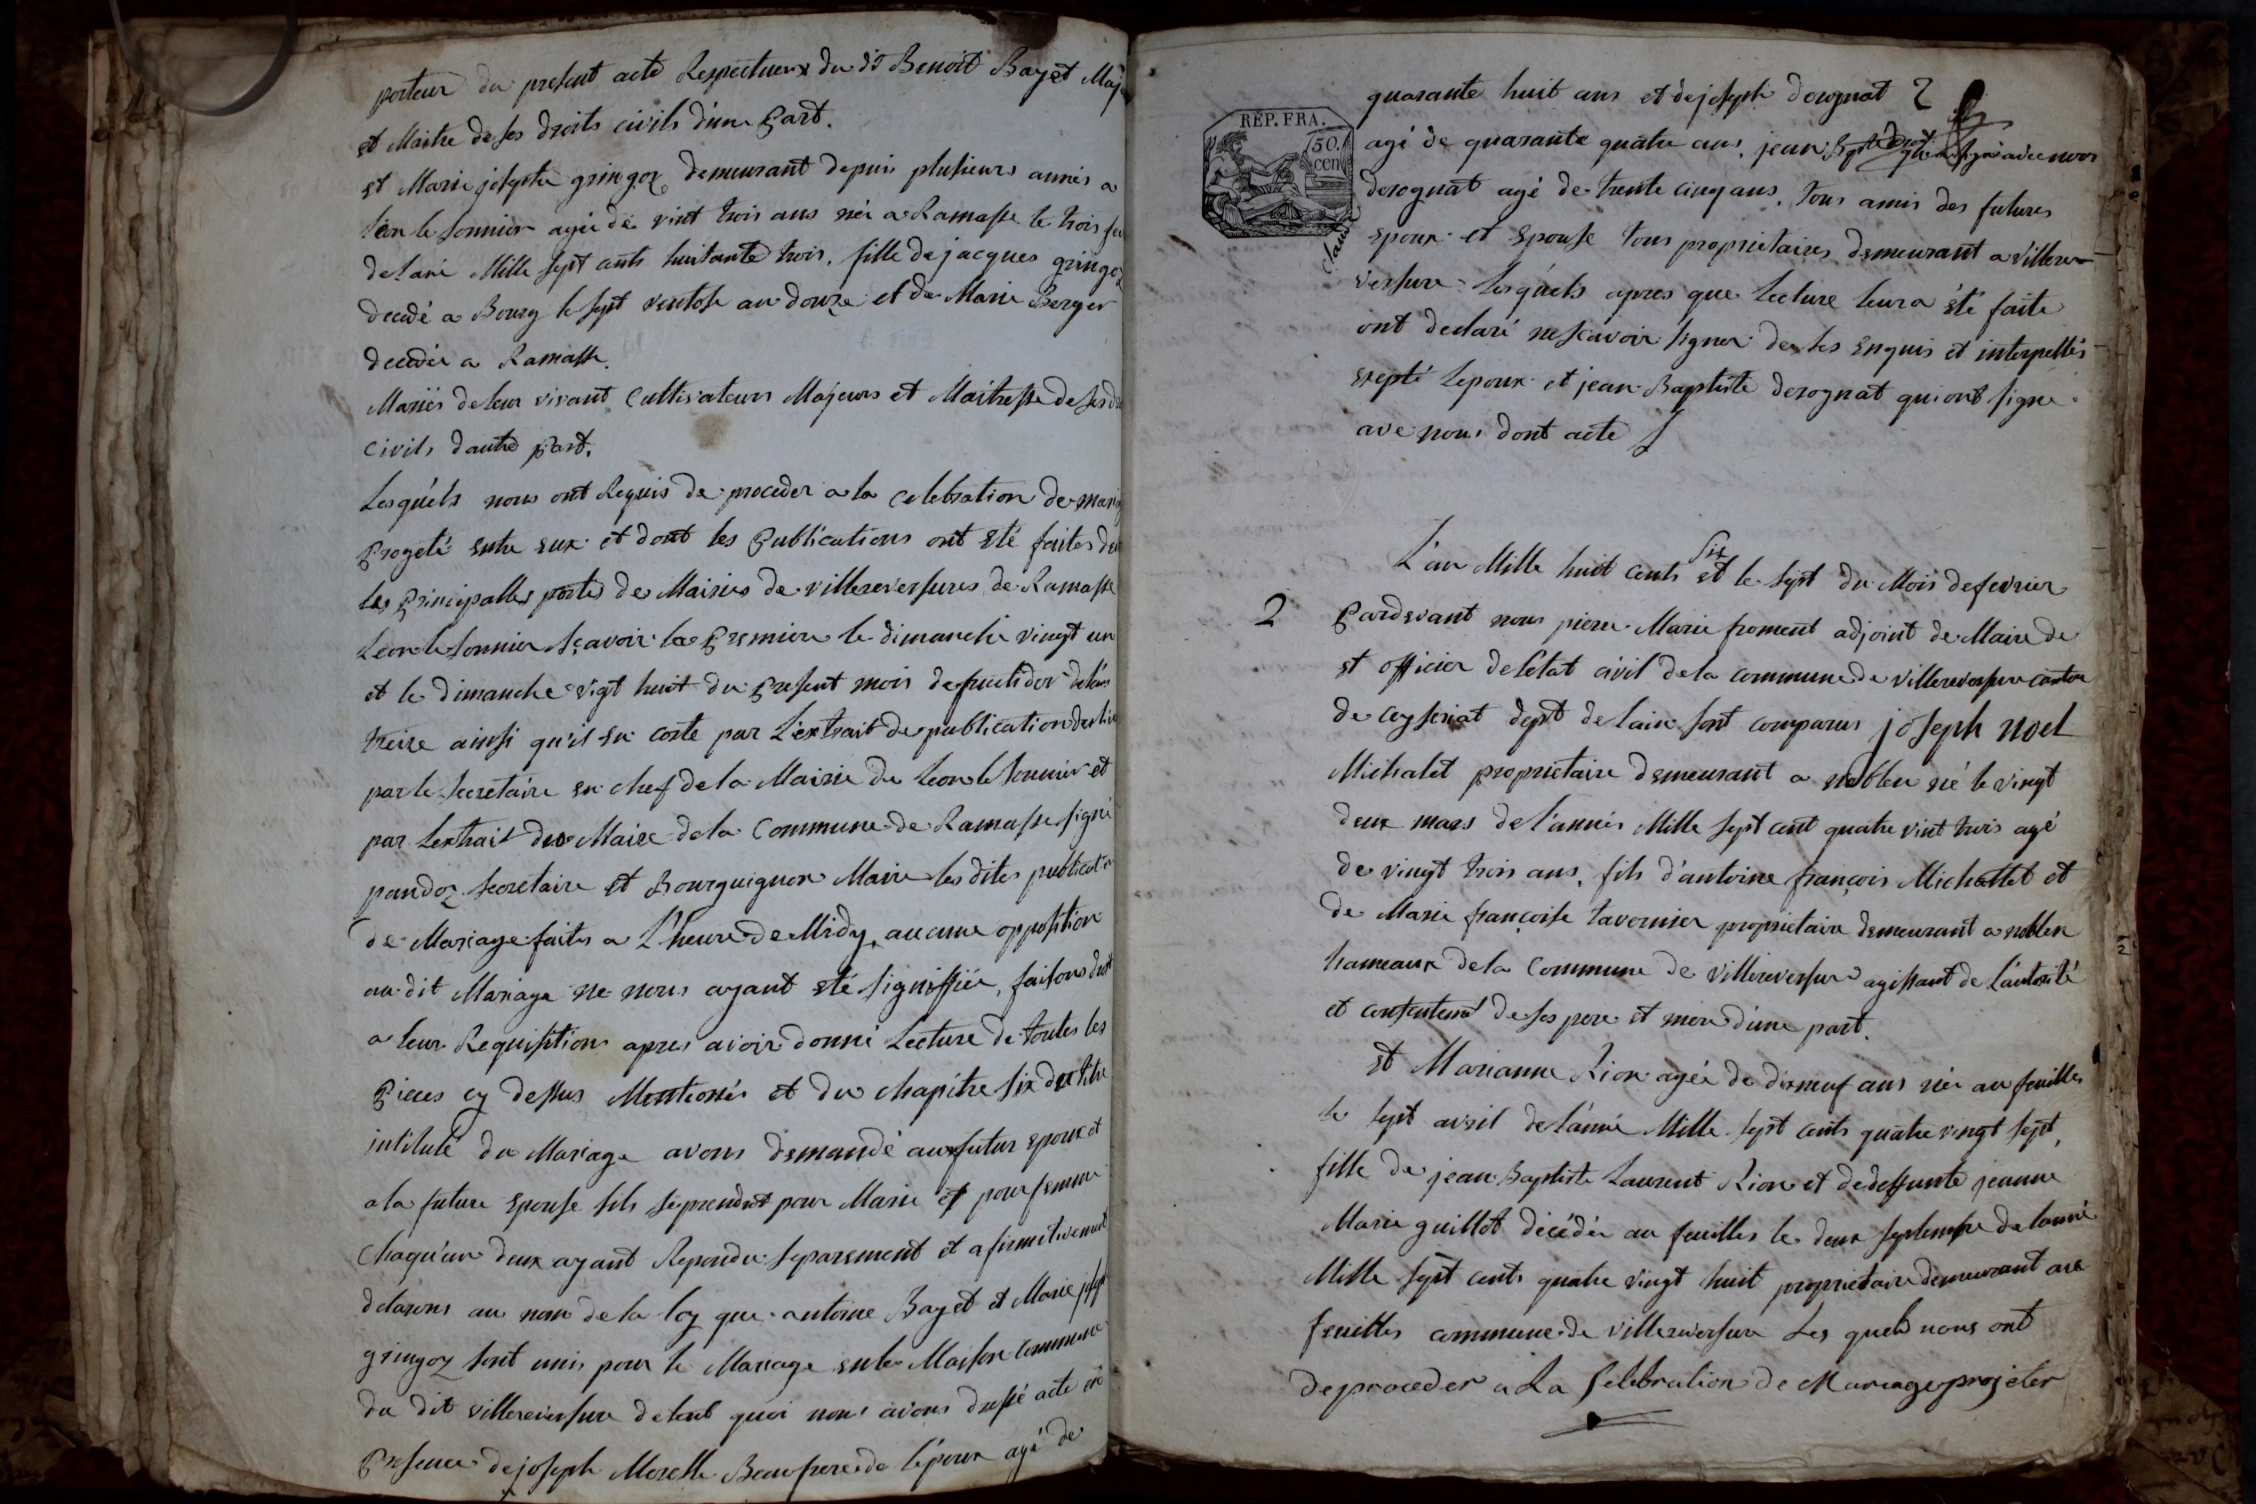 porteur du present acte Respectueux du dt Benoit Bayet Maj
et Maitre de ses droits civils d'une Part.
et Marie josephe gringoz demeurant depuis plusieurs annés a
leon le sonnier agée de vint trois ans née a Ramasse le trois
de lané Mille sept cents huitante trois. fille de jacques gringoz
decedé a Bourg le sept ventose an douze et de Marie Berger
decedée a Ramasse.
Mariés de leur vivant Cultivateurs Majeurs et Maitresse de ses
Civils d'autre part.
Lesquels nous ont Requis de proceder a la celebration de
Progeté entre eux et dont les Publications ont été faites
les Principalles portes de Mairies de villereversures de Ramasse
Leon le sonnier sçavoir la Premiere le dimanche vingt un
et le dimanche vigt huit du Present mois de fructidor
treize ainsi qu'il en coste par L'extrait de publication
par le secretaire en chef de la Mairie de Leon le sonnier et
par Lextrait du Maire de la Commune de Ramasse signé
pandoz secretaire et Bourguignon Maire les dites
de Mariage faites a L'heure de Midy, aucune opposition
au dit Mariage ne nous ayant été signiffiée, faisons droit
a leur Requisition apres avoir donné Lecture de toutes les
Pieces cy dessus Mentionés et du chapitre six du titre
intitulé du Mariage avons demandé au futur epoux et
a la future Epouse sils se prendre pour Marie et pour femme
Chaqu'un deux ayant Repondu separement et afirmitivement
delarons au nom de la loy que antoine Bayet et Marie
gringoz sont unis pour le Mariage en la Maison commune
du dit villereversure de tout quoi nous avons dressé acte en
Presence de joseph Morelle Beaufrere de l'epoux agé de
quarante huit ans et de joseph derognat
REP. FRA.
50. cen.
agé de quarante quatre ans. jean
derognat agé de trente cinq ans. tous amis des futures
Claude
epoux et Epouse tous proprietaires demeurant a villere
versure Lesquels apres que Lecture leur a été faite
ont declaré ne scavoir signer de ses Enquis et interpellés
excepté Lepoux et jean Baptiste derognat qui ont signe
ave nous dont acte
L'an Mille huit cents six et le sept du Mois de fevrier
2
Pardevant nous pierre Marie froment adjoint de Maire de
et officier de l'etat civil de la commune de villereversure canton
de ceyseriat dept de Lain sont comparus joseph noel
Michalet proprietaire demeurant a noblen né le vingt
deux mars de l'année Mille sept cent quatre vint trois agé
de vingt trois ans. fils d'antoine françois Michallet et
de Marie françoise tavernier proprietaire demeurant a noblen
hameaux de la Commune de villereversure agissant de l'autorité
et consentemt de ses pere et mere d'une part.
et Marianne Rion agée de dixneuf ans née au feuilles
le sept avril de l'année Mille sept cents quatre vingt sept,
fille de jean Baptiste Laurent Rion et de deffunte jeanne
Marie guillot décédée au feuilles le deux septembre de lanné
Mille sept cents quatre vingt huit proprietaire demeurant aux
feuilles commune de villereversure Les quels nous ont
de proceder a La selebration de Mariage projeter